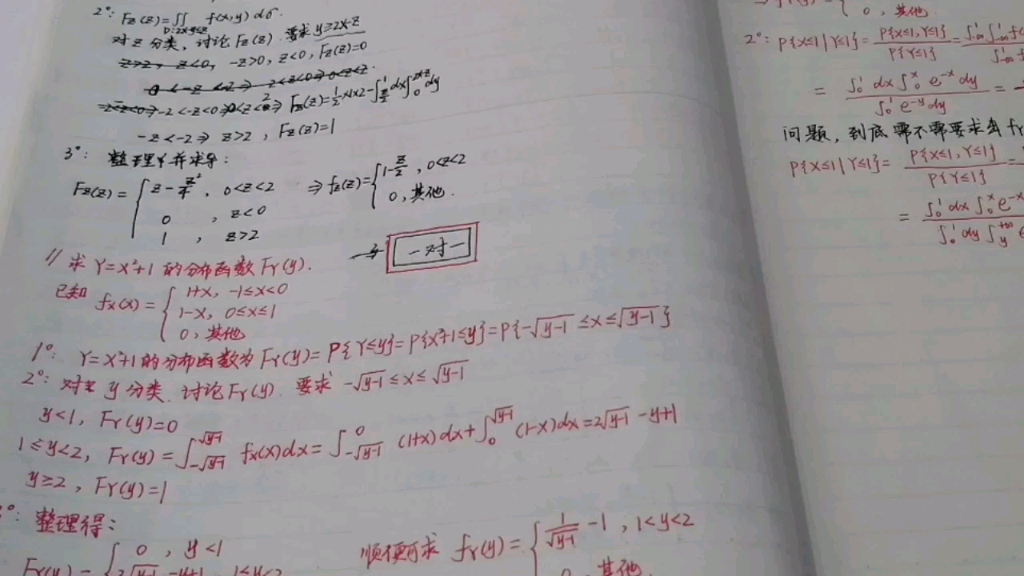 2°: F_Z(z)=∬ f(x,y)dσ.
D:2x-y≤z
对z分类，讨论F_Z(z) 要求 y≥2x-z
-z>0, z<0, F_Z(z)=0
-2<-z<0 ⇒ 0<z<2 ⇒ F_Z(z)=½×1×2-∫ dx∫ dy
-z<-2 ⇒ z>2, F_Z(z)=1
3°: 整理并求导:
F_Z(z)= { z-z²/4, 0<z<2
0, z<0
1, z>2
⇒ f_Z(z)= { 1-z/2, 0<z<2
0, 其他.
→ 一对一
// 求 Y=X²+1 的分布函数 F_Y(y).
已知 f_X(x)= { 1+x, -1≤x<0
1-x, 0≤x≤1
0, 其他
1°: Y=X²+1的分布函数为F_Y(y)=P{Y≤y}=P{x²+1≤y}=P{-√(y-1)≤x≤√(y-1)}
2°: 对 y分类, 讨论F_Y(y). 要求 -√(y-1)≤x≤√(y-1)
y<1, F_Y(y)=0
1≤y<2, F_Y(y)=∫_{-√(y-1)}^{√(y-1)} f_X(x)dx=∫_{-√(y-1)}^{0} (1+x)dx+∫_{0}^{√(y-1)} (1-x)dx=2√(y-1)-y+1
y≥2, F_Y(y)=1
3°: 整理得:
F_Y(y)= { 0, y<1
2√(y-1)-y+1, 1≤y<2
顺便可求 f_Y(y)= { 1/√(y-1) -1, 1<y<2
0, 其他.
0, 其他
2°: P{X≤1|Y≤1}= P{X≤1,Y≤1}/P{Y≤1} =
= ∫_0^1 dx∫_0^x e^{-x}dy / ∫_0^1 e^{-y}dy =
问题, 到底需不需要求出 f
P{X≤1|Y≤1}= P{X≤1,Y≤1}/P{Y≤1} =
= ∫_0^1 dx∫_0^x e^{-x} / ∫_0^1 dy∫_y^{+∞} e